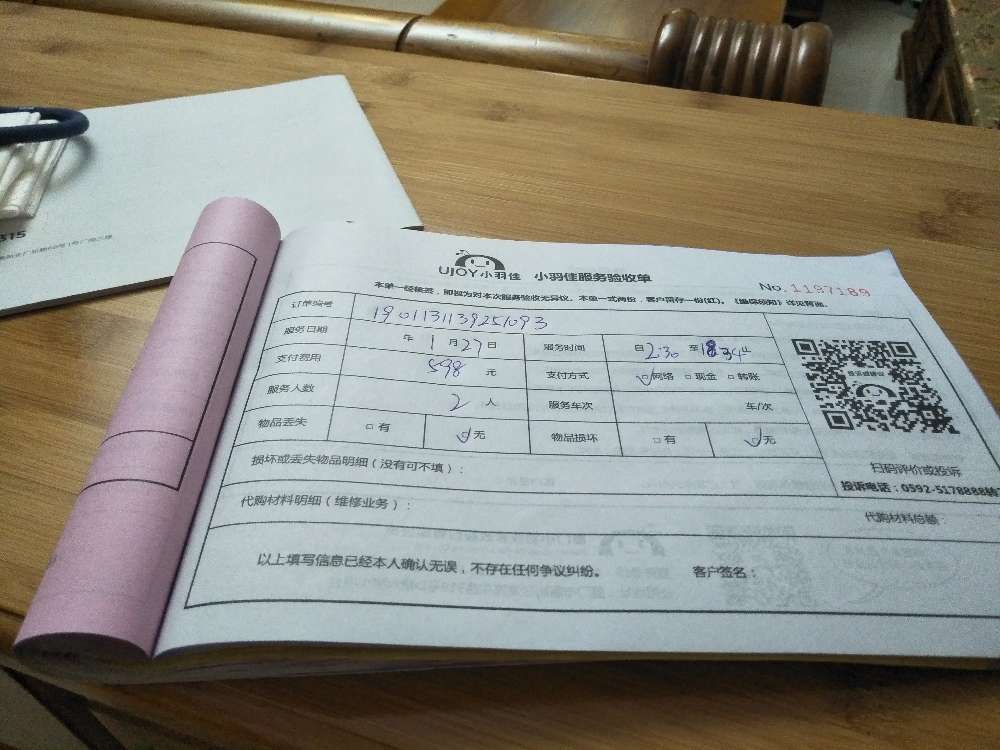 315
UJOY小羽佳 小羽佳服务验收单
No.1197189
本单一经核签，即视为对本次服务验收无异议。本单一式两份，客户留存一份(红)。
订单编号 1901131139251093
服务日期 年 1 月 27 日 服务时间 自 2:30 至
支付费用 598 元 支付方式 网络 □现金 □转账
服务人数 2 人 服务车次 车/次
物品丢失 □有 无 物品损坏 □有 无
扫码评价或投诉
投诉电话：0592-5178888转
损坏或丢失物品明细（没有可不填）：
代购材料明细（维修业务）： 代购材料总额：
以上填写信息已经本人确认无误，不存在任何争议纠纷。 客户签名：